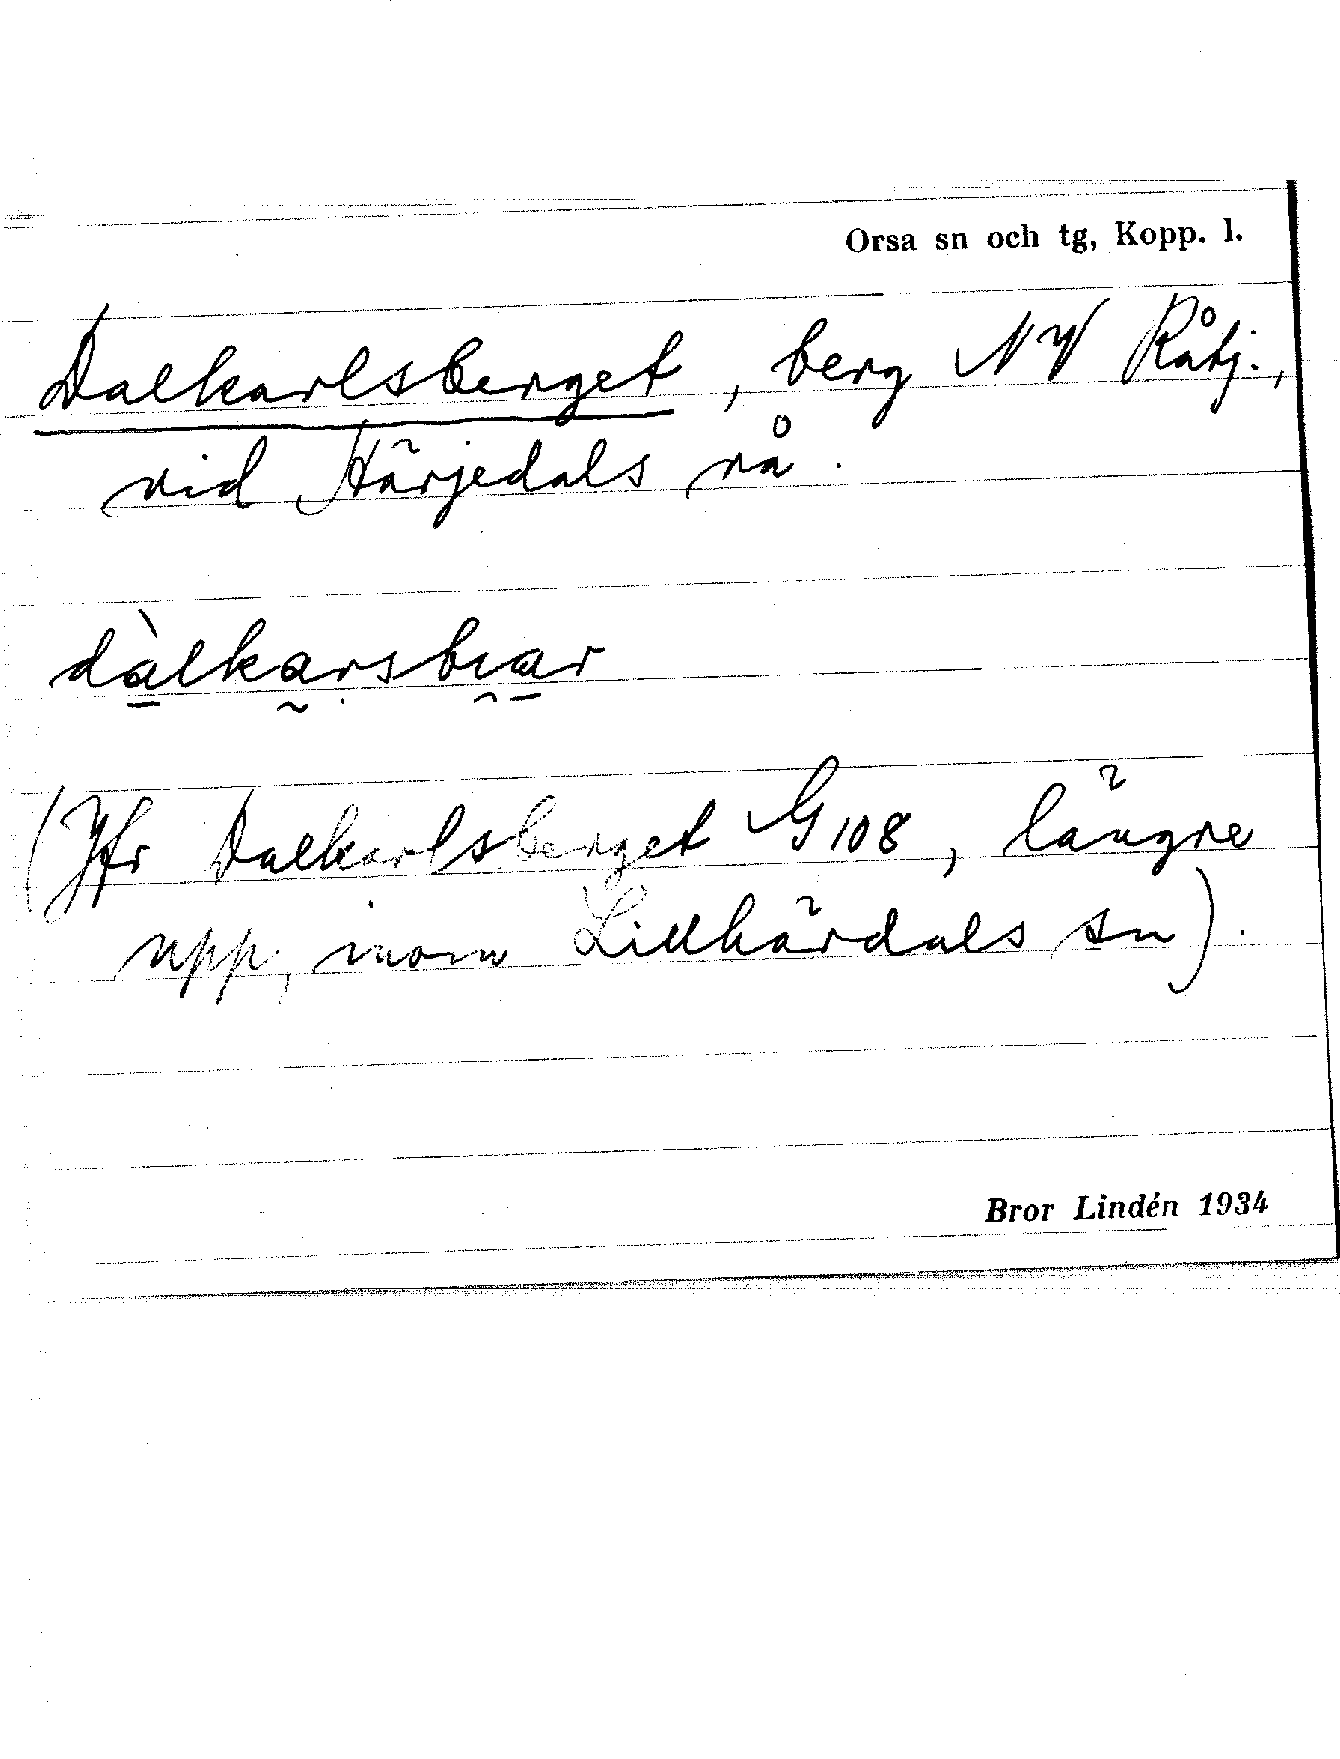 Orsa sn och tg, Kopp. l.
Dalkarlsberget, berg NV Råtj.,
vid Härjedals rå.
dàlkarsbıar
(Jfr Dalkarlsberget G 108, längre
upp, inom Lillhärdals sn).
Bror Lindén 1934